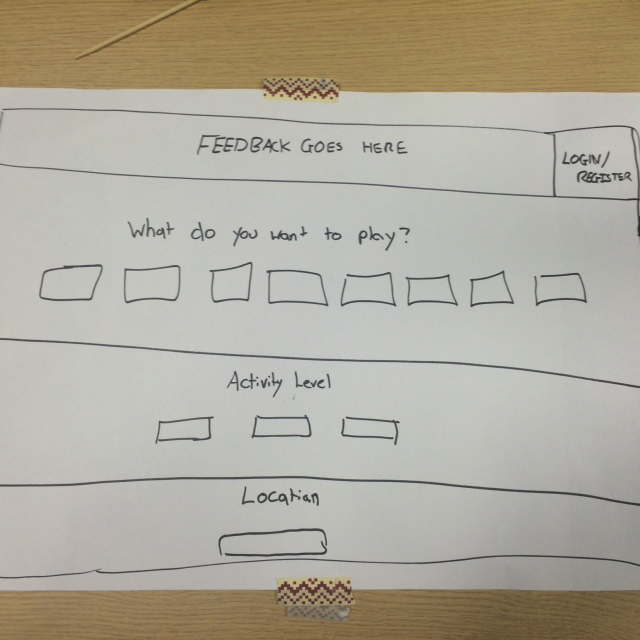 FEEDBACK GOES HERE
LOGIN/
REGISTER
What do you want to play?
Activity Level
Location